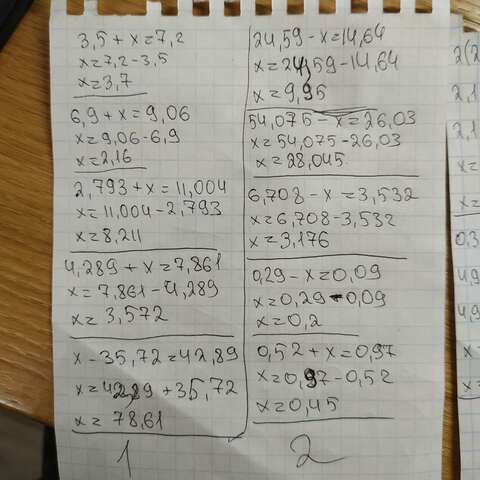 3,5 + x = 7,2
x = 7,2 - 3,5
x = 3,7
6,9 + x = 9,06
x = 9,06 - 6,9
x = 2,16
2,793 + x = 11,004
x = 11,004 - 2,793
x = 8,211
4,289 + x = 7,861
x = 7,861 - 4,289
x = 3,572
x - 35,72 = 42,89
x = 42,89 + 35,72
x = 78,61
1
24,59 - x = 14,64
x = 24,59 - 14,64
x = 9,95
54,075 - x = 26,03
x = 54,075 - 26,03
x = 28,045
6,708 - x = 3,532
x = 6,708 - 3,532
x = 3,176
0,29 - x = 0,09
x = 0,29 - 0,09
x = 0,2
0,52 + x = 0,97
x = 0,97 - 0,52
x = 0,45
2
2(2
2,1
2,1
x =
x =
0,3
4,9
4,9
x
x =